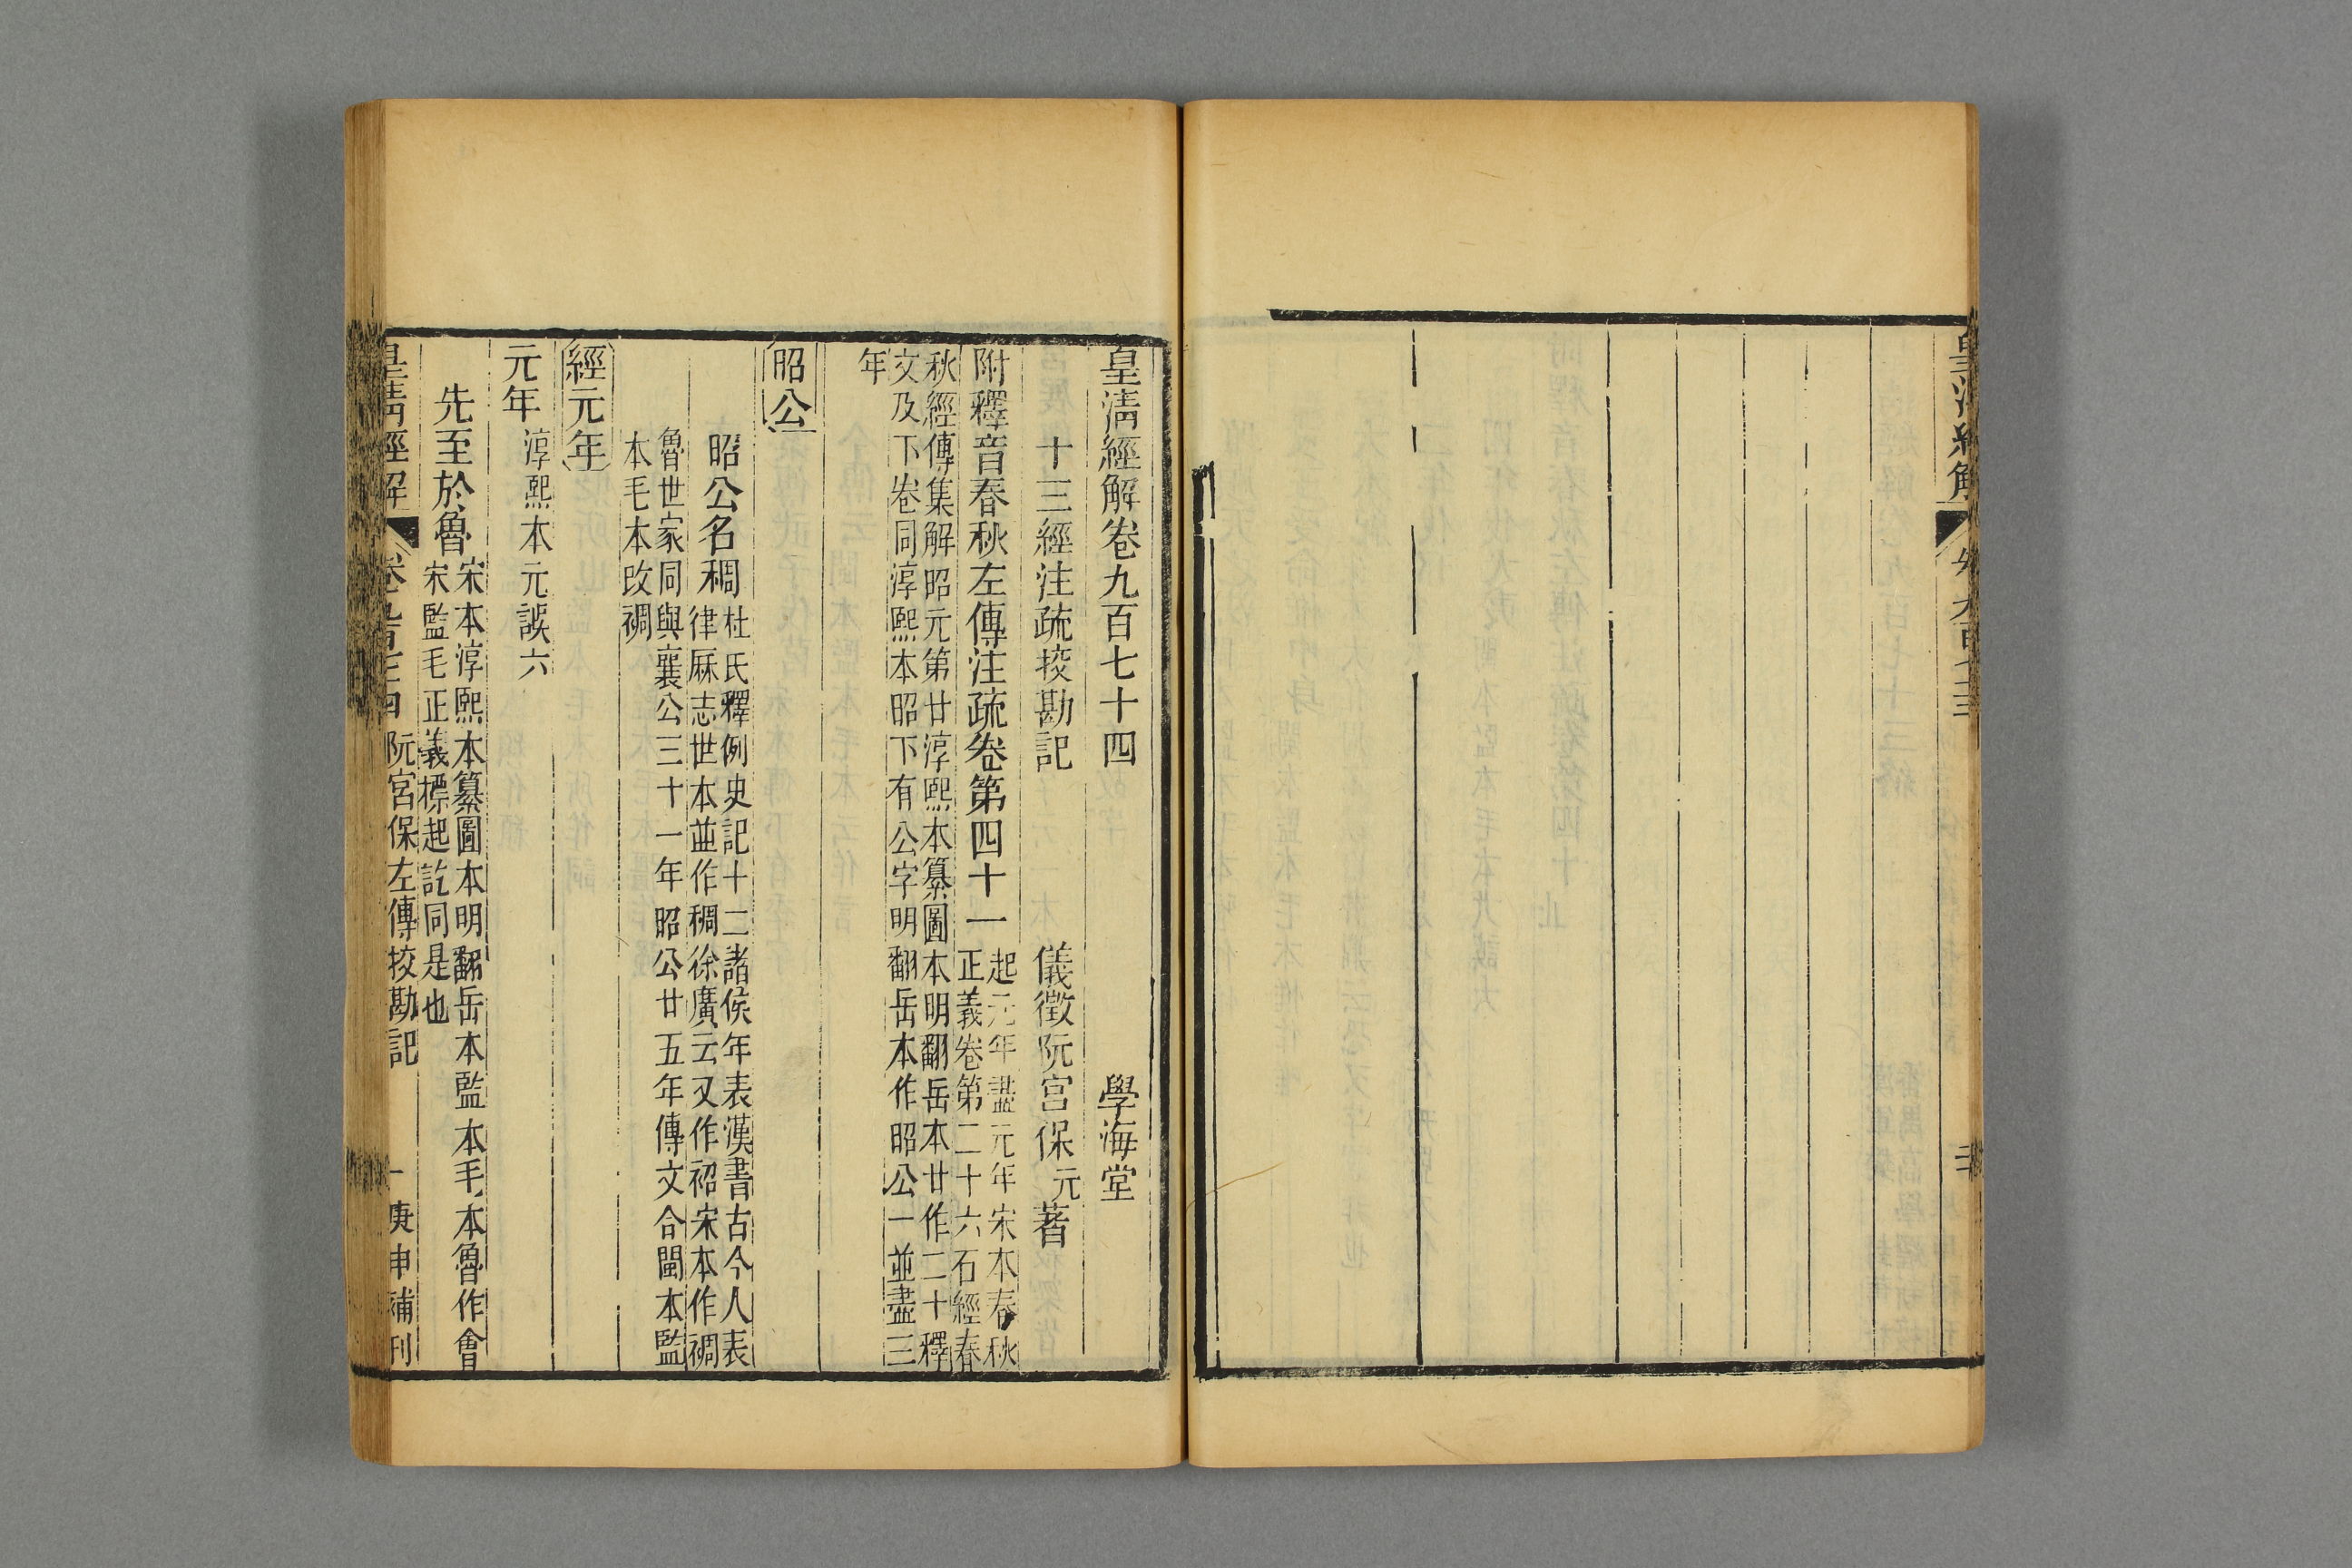 皇清經解卷九百七十四
學海堂
十三經注疏挍勘記
儀徵阮宮保元著
附釋音春秋左傳注疏卷第四十一
起元年盡元年宋本春秋
正義卷第二十六石經春
秋經傳集解昭元第廿淳熙本纂圖本明翻岳本廿作二十釋
文及下卷同淳熙本昭下有公字明翻岳本作昭公一並盡三
年
昭公
昭公名稠
杜氏釋例史記十二諸侯年表漢書古今人表
律厤志世本並作稠徐廣云又作袑宋本作裯
魯世家同與襄公三十一年昭公廿五年傳文合閩本監
本毛本改裯
經元年
元年
淳熙本元誤六
先至於魯
宋本淳熙本纂圖本明翻岳本監本毛本魯作會
宋監毛正義標起訖同是也
皇清經解
卷九百七十四
阮宮保左傳挍勘記
一
庚申補刊